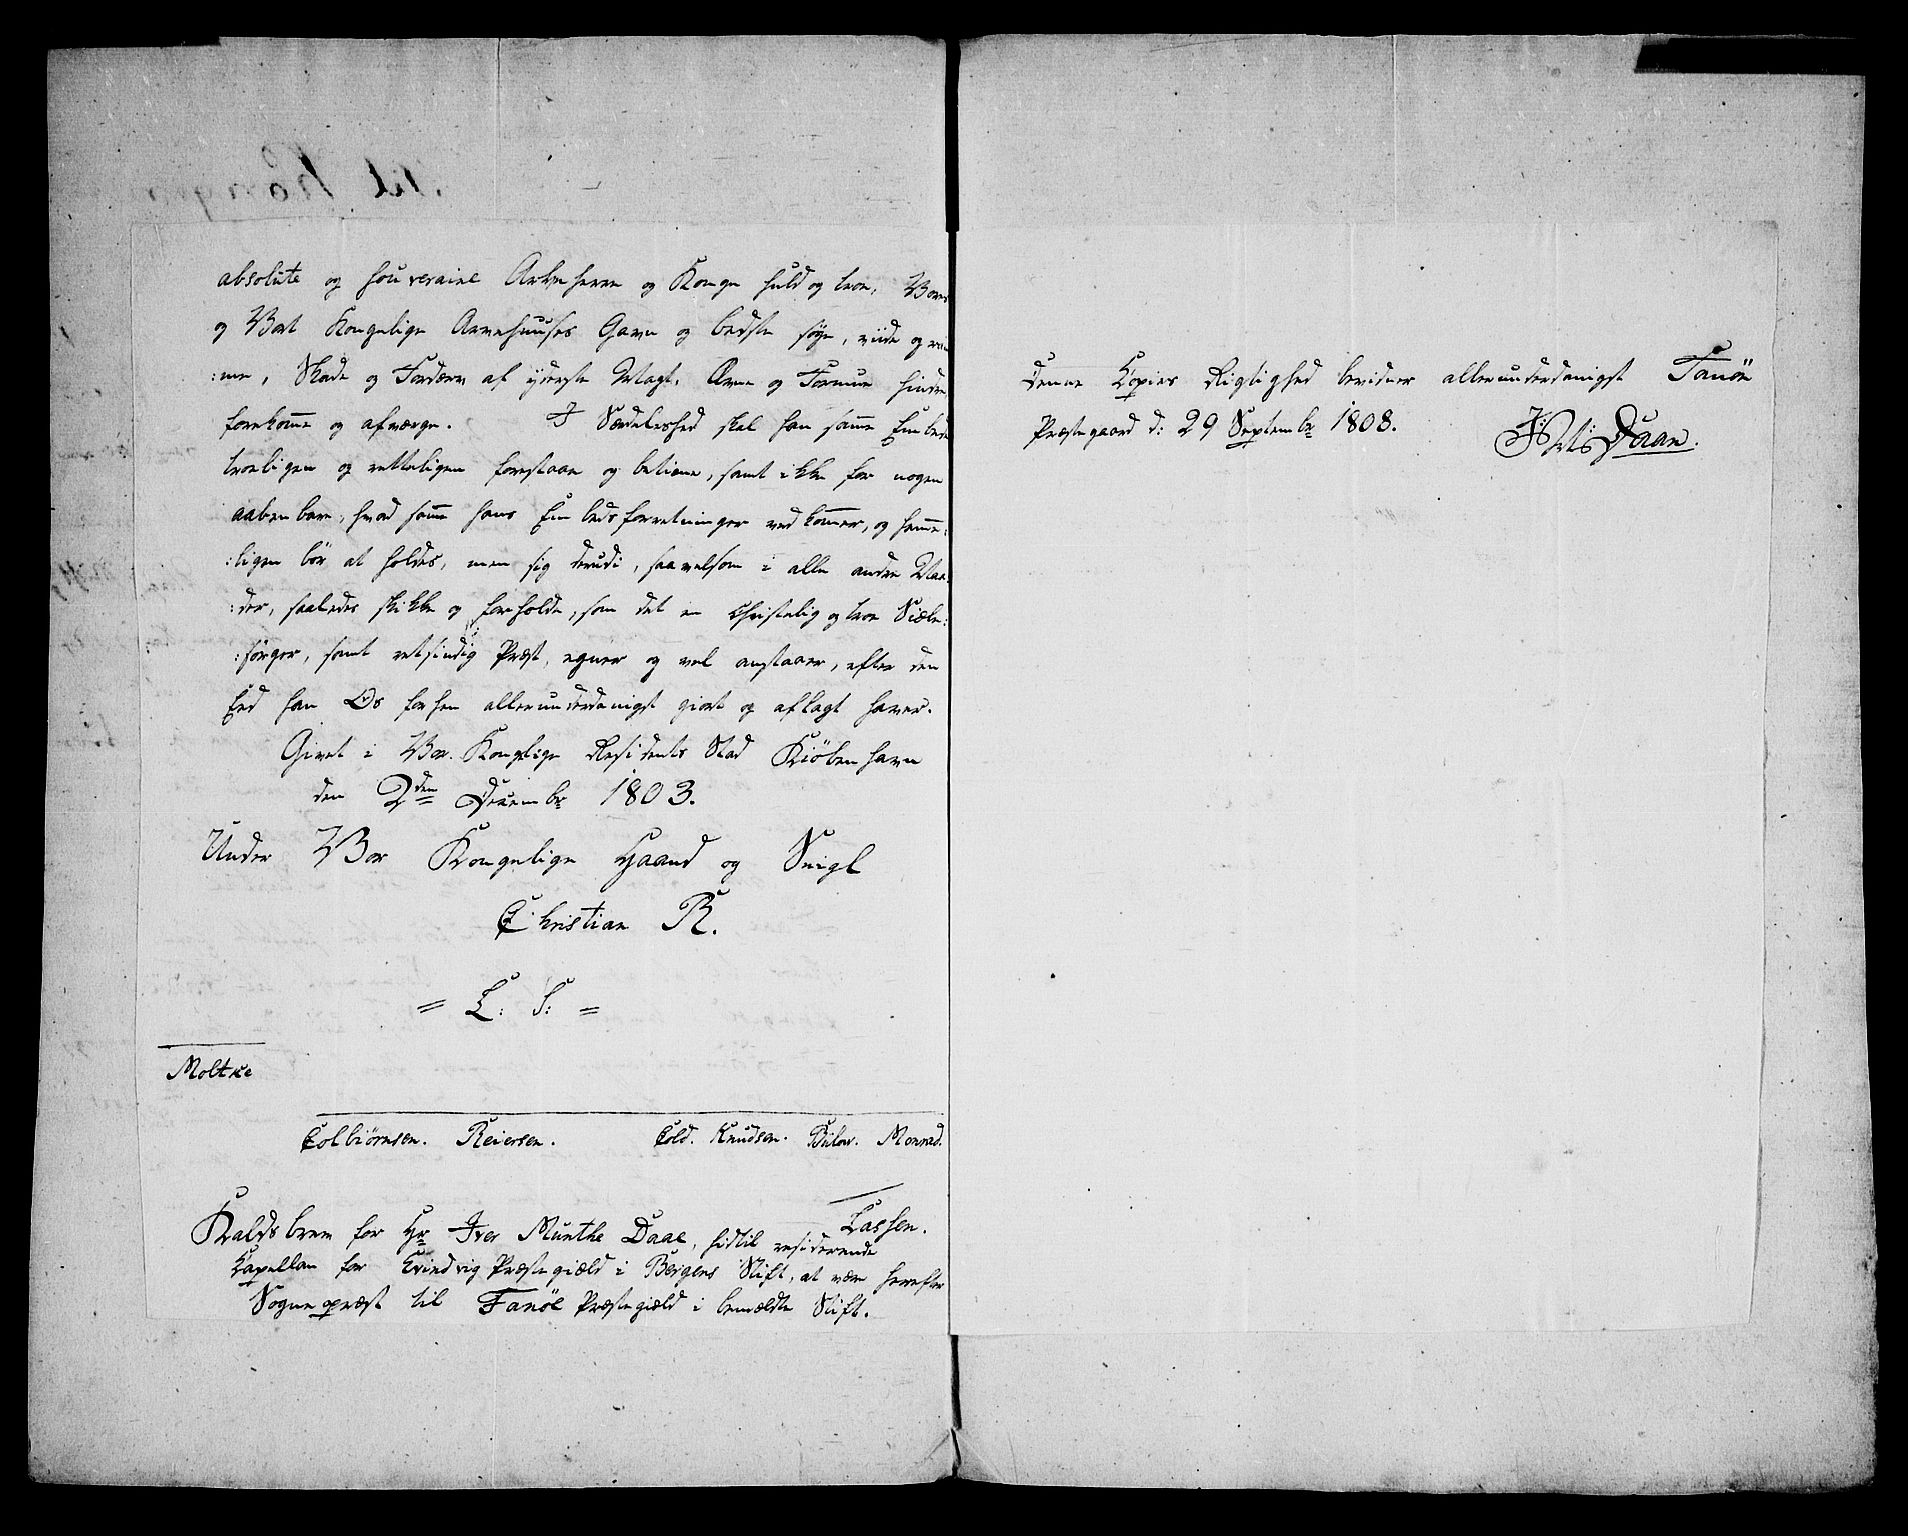 absolute og souveraine Arveherre og Konge huld og troe, Vores
og Vort Kongelige Arvehuuses Gavn og bedste søge, viide og ram
:me, Skade og Fordærv af yderste Magt, Ævne og Formue hindre
forekom̄e og afværge. I Særdeleshed skal han sam̄e Embede
troeligen og retteligen forestaae og betiene, samt ikke for nogen
aabenbare, hvad sam̄e hans Embeds forretninger vedkom̄er, og hem̄e:
:ligen bör at holdes, men sig derudi, saavelsom i alle andre Maa:
:der, saaledes skikke og forholde, som det en Christelig og troe Siæle:
:sörger, samt retsindig Præst, egner og vel anstaaer, efter den
Eed han Os forhen allerunderdanigst giort og aflagt haver.
Givet i Vor Konglige Residents Stad Kiöbenhavn
den 2den Decembr 1803.
Under Vor Kongelige Haand og Seigl
Christian R.
= L: S: =
Moltke
Colbiörnsen. Reiersen. Cold. Knudsen. Bülow. Monrad.
Lassen.
Kaldsbrev for Hr Iver Munthe Daae, hidtil residerende
Kapellan for Evindvig Præstegiæld i Bergens Stift, at være herefter
Sognepræst til Fanöe Præstegiæld i bemældte Stift.
Denne Copies Rigtighed bevidner allerunderdanigst Fanöe
Præstegaard d: 29 Septembr 1808.
I: M: Daae.
Til Kongen